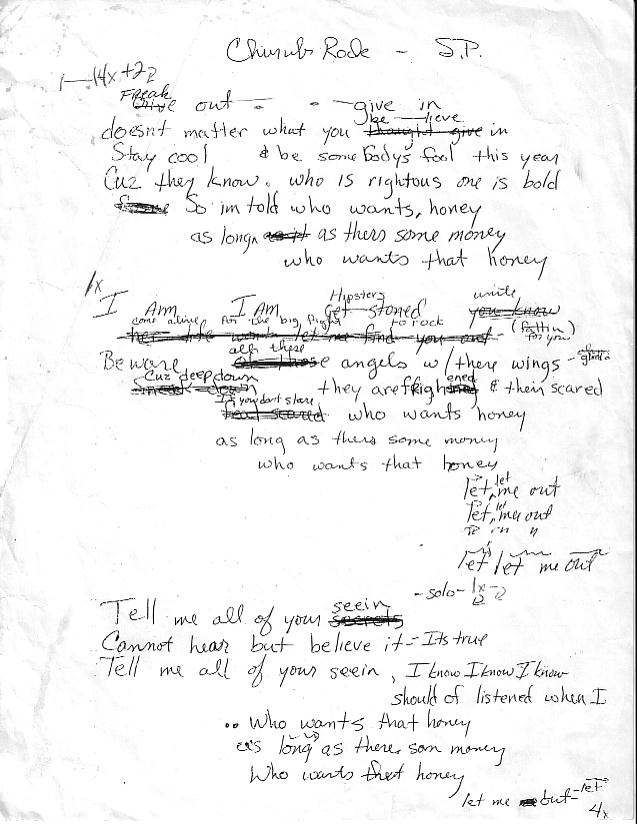 Cherub Rock - S.P.
1 — (4x + 2
Freak out - - - give in
doesnt matter what you believe in
Stay cool & be some body's fool this year
Cuz they know. who is rightous one is bold
So im told who wants, honey
as long as thers some money
who wants that honey
1x
Hipsters unite
I Am I Am Get stoned you know
come alive for the big fight to rock (fallin for you)
her life wont let me find you out
all these
Beware angels w/ there wings -
Cuz deep down they are frightened & their scared
If you dont stare
who wants honey
as long as thers some money
who wants that honey
let, let me out
let, let me out
let let me out
- solo - 1x
seein
Tell me all of your secrets
Cannot hear but believe it - Its true
Tell me all of your seein, I know I know I know
should of listened when I
.. Who wants that honey
as long as there som money
Who wants that honey
let me out - let
4x